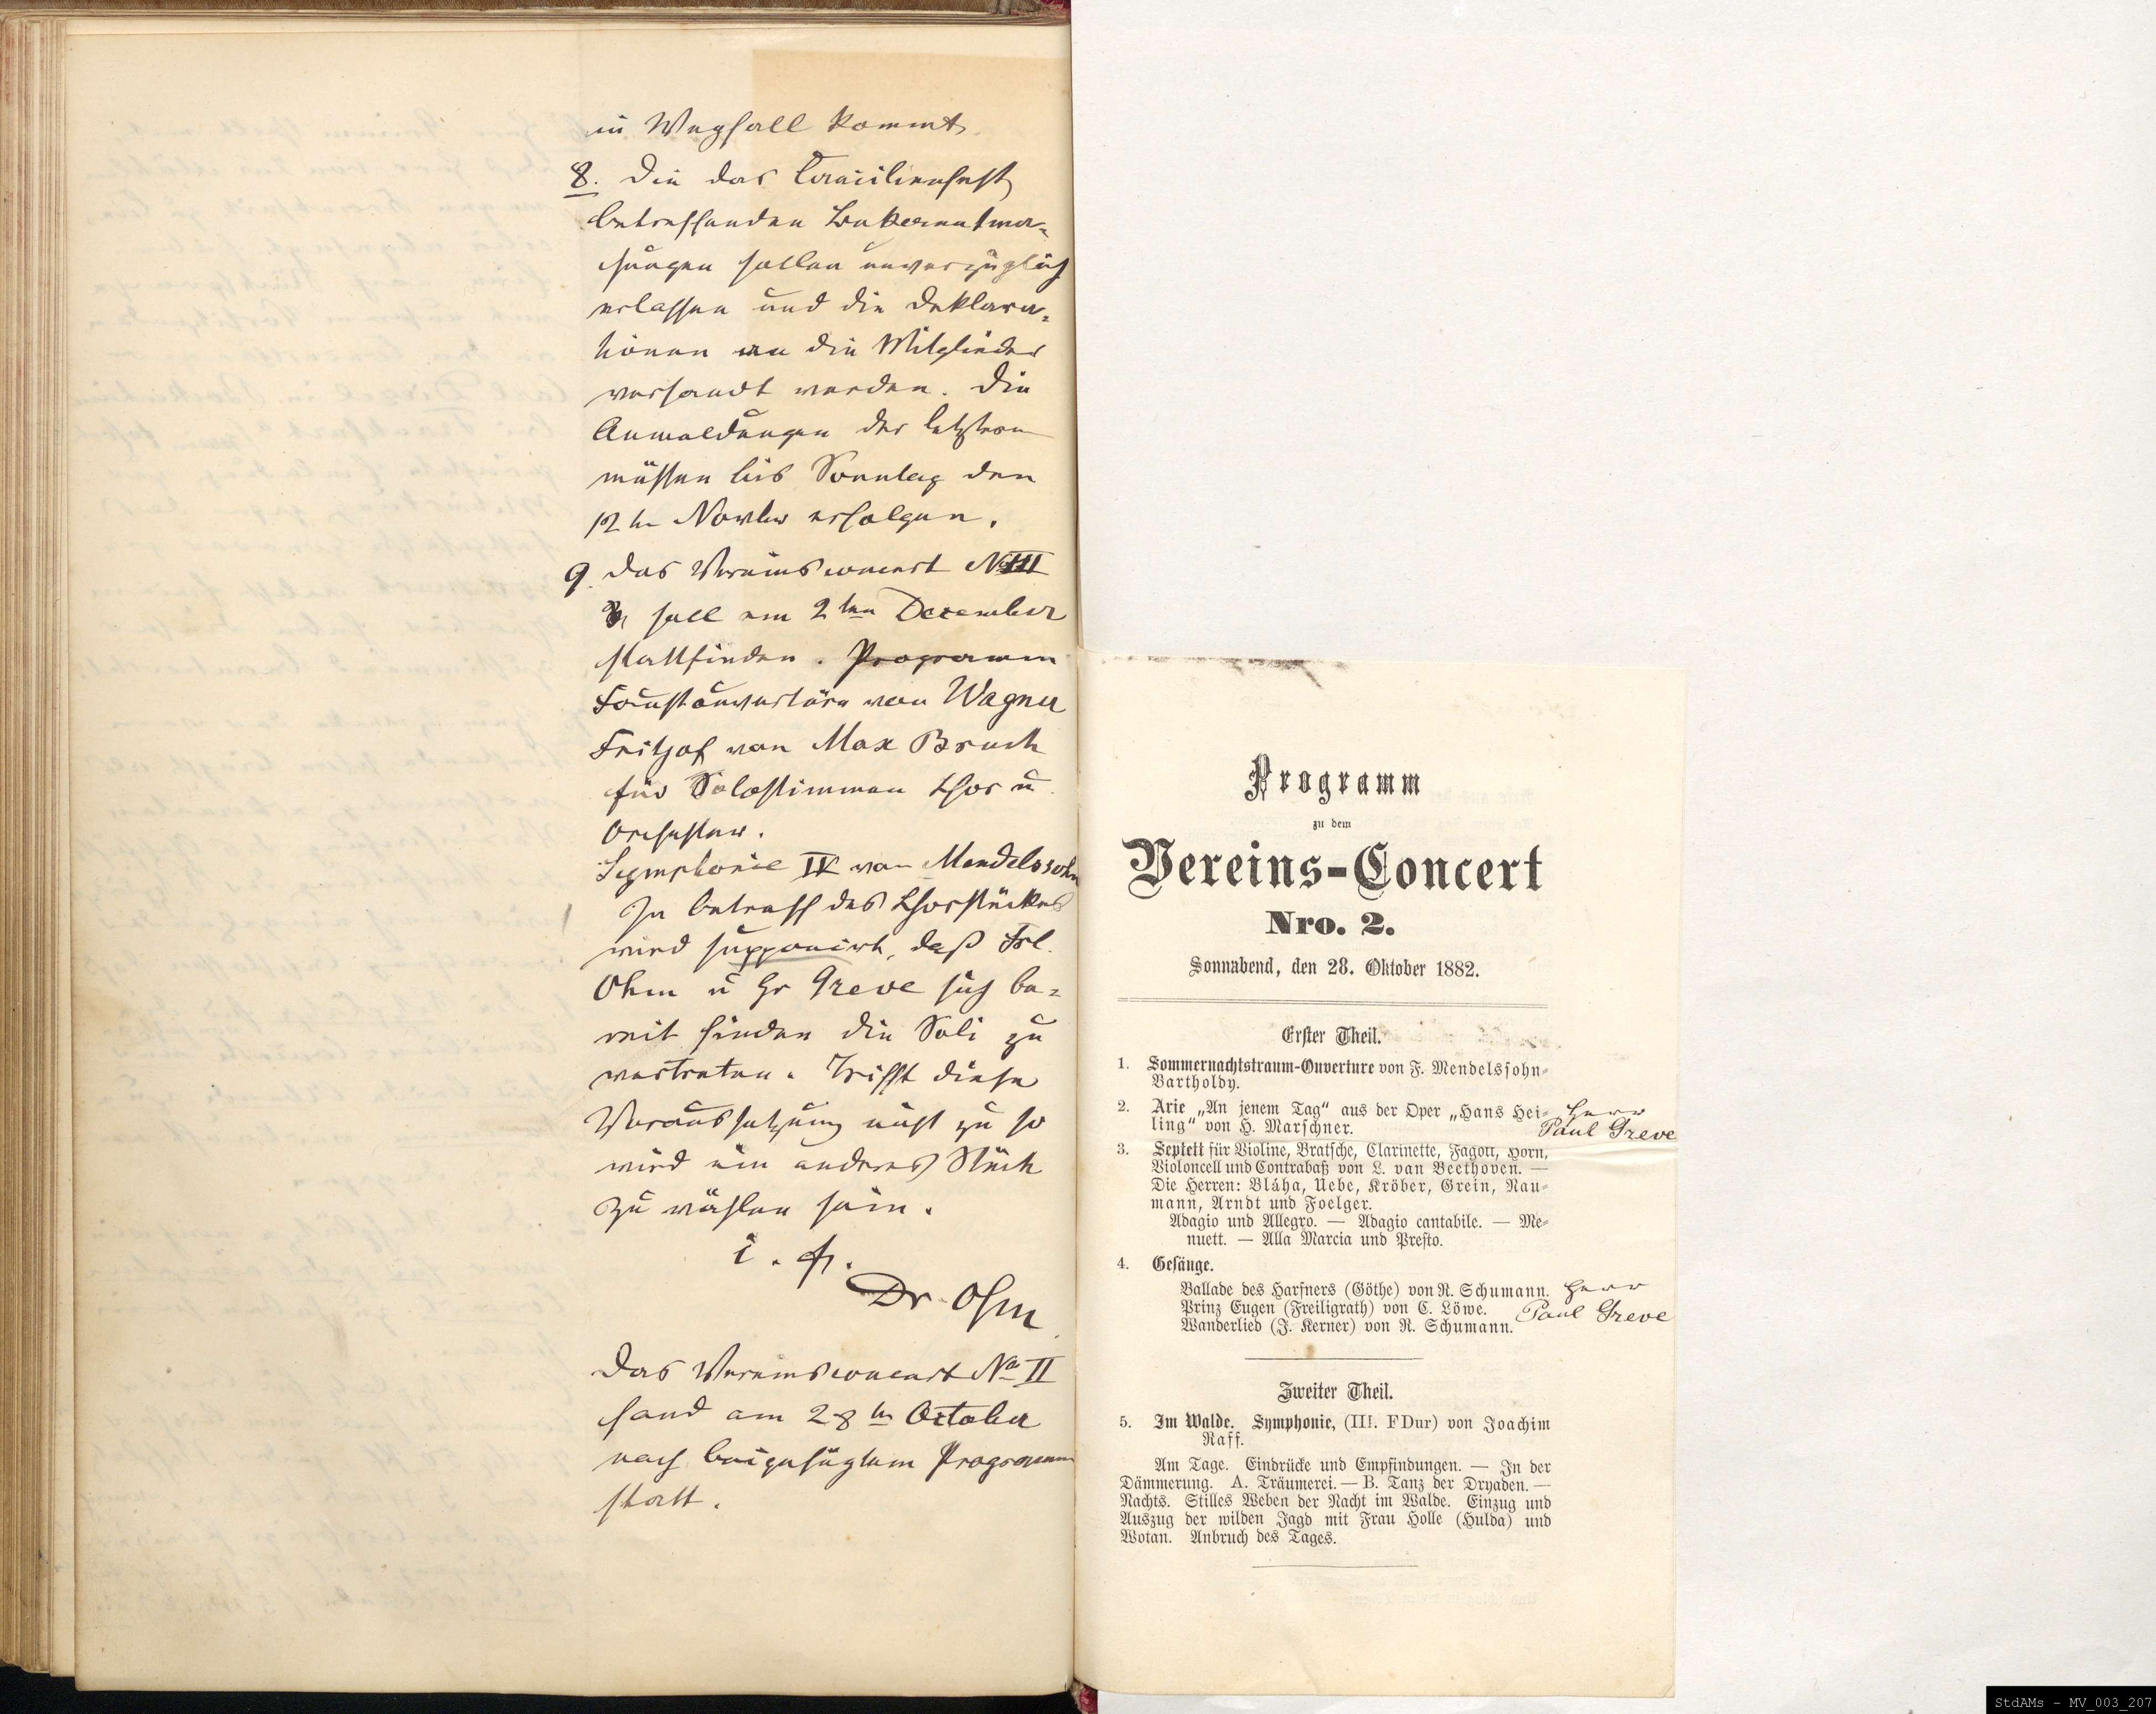 in Wegfall kommt
8. Die das Familienfest
betreffenden Bekanntma-
chungen sollen unverzüglich
erlassen und die Deklara-
tionen an die Mitglieder
versandt werden. Die
Anmeldungen der letzteren
müssen bis Sonntag den
12tn Novbr erfolgen.
9. Das Vereinsconcert No III
soll am 2ten December
stattfinden. Programm
Faustouverture von Wagner
Fritjof von Max Bruch
für Solostimmen Chor u
Orchester.
Symphonie IV von Mendelssohn
In betreff des Chorstückes
wird supponirt, daß Frl.
Ohm u Hr Greve sich be-
reit finden die Soli zu
vertreten. Trifft diese
Voraussetzung nicht zu so
wird ein anderes Stück
zu wählen sein.
Dr Ohm
Das Vereinsconcert No II
fand am 28tn October
nach beigefügtem Programm
statt.
Programm
zu dem
Vereins-Concert
Nro. 2.
Sonnabend, den 28. Oktober 1882.
Erster Theil.
1. Sommernachtstraum-Ouverture von F. Mendelssohn-
Bartholdy.
2. Arie „An jenem Tag“ aus der Oper „Hans Hei- Herr
ling“ von H. Marschner. Paul Greve
3. Septett für Violine, Bratsche, Clarinette, Fagott, Horn,
Violoncell und Contrabaß von L. van Beethoven. —
Die Herren: Bláha, Uebe, Kröber, Grein, Nau-
mann, Arndt und Foelger.
Adagio und Allegro. — Adagio cantabile. — Me-
nuett. — Alla Marcia und Presto.
4. Gesänge.
Ballade des Harfners (Göthe) von R. Schumann. Herr
Prinz Eugen (Freiligrath) von C. Löwe. Paul Greve
Wanderlied (J. Kerner) von R. Schumann.
Zweiter Theil.
5. Im Walde. Symphonie, (III. F Dur) von Joachim
Raff.
Am Tage. Eindrücke und Empfindungen. — In der
Dämmerung. A. Träumerei. — B. Tanz der Dryaden. —
Nachts. Stilles Weben der Nacht im Walde. Einzug und
Auszug der wilden Jagd mit Frau Holle (Hulda) und
Wotan. Anbruch des Tages.
StdAMs - MV_003_207